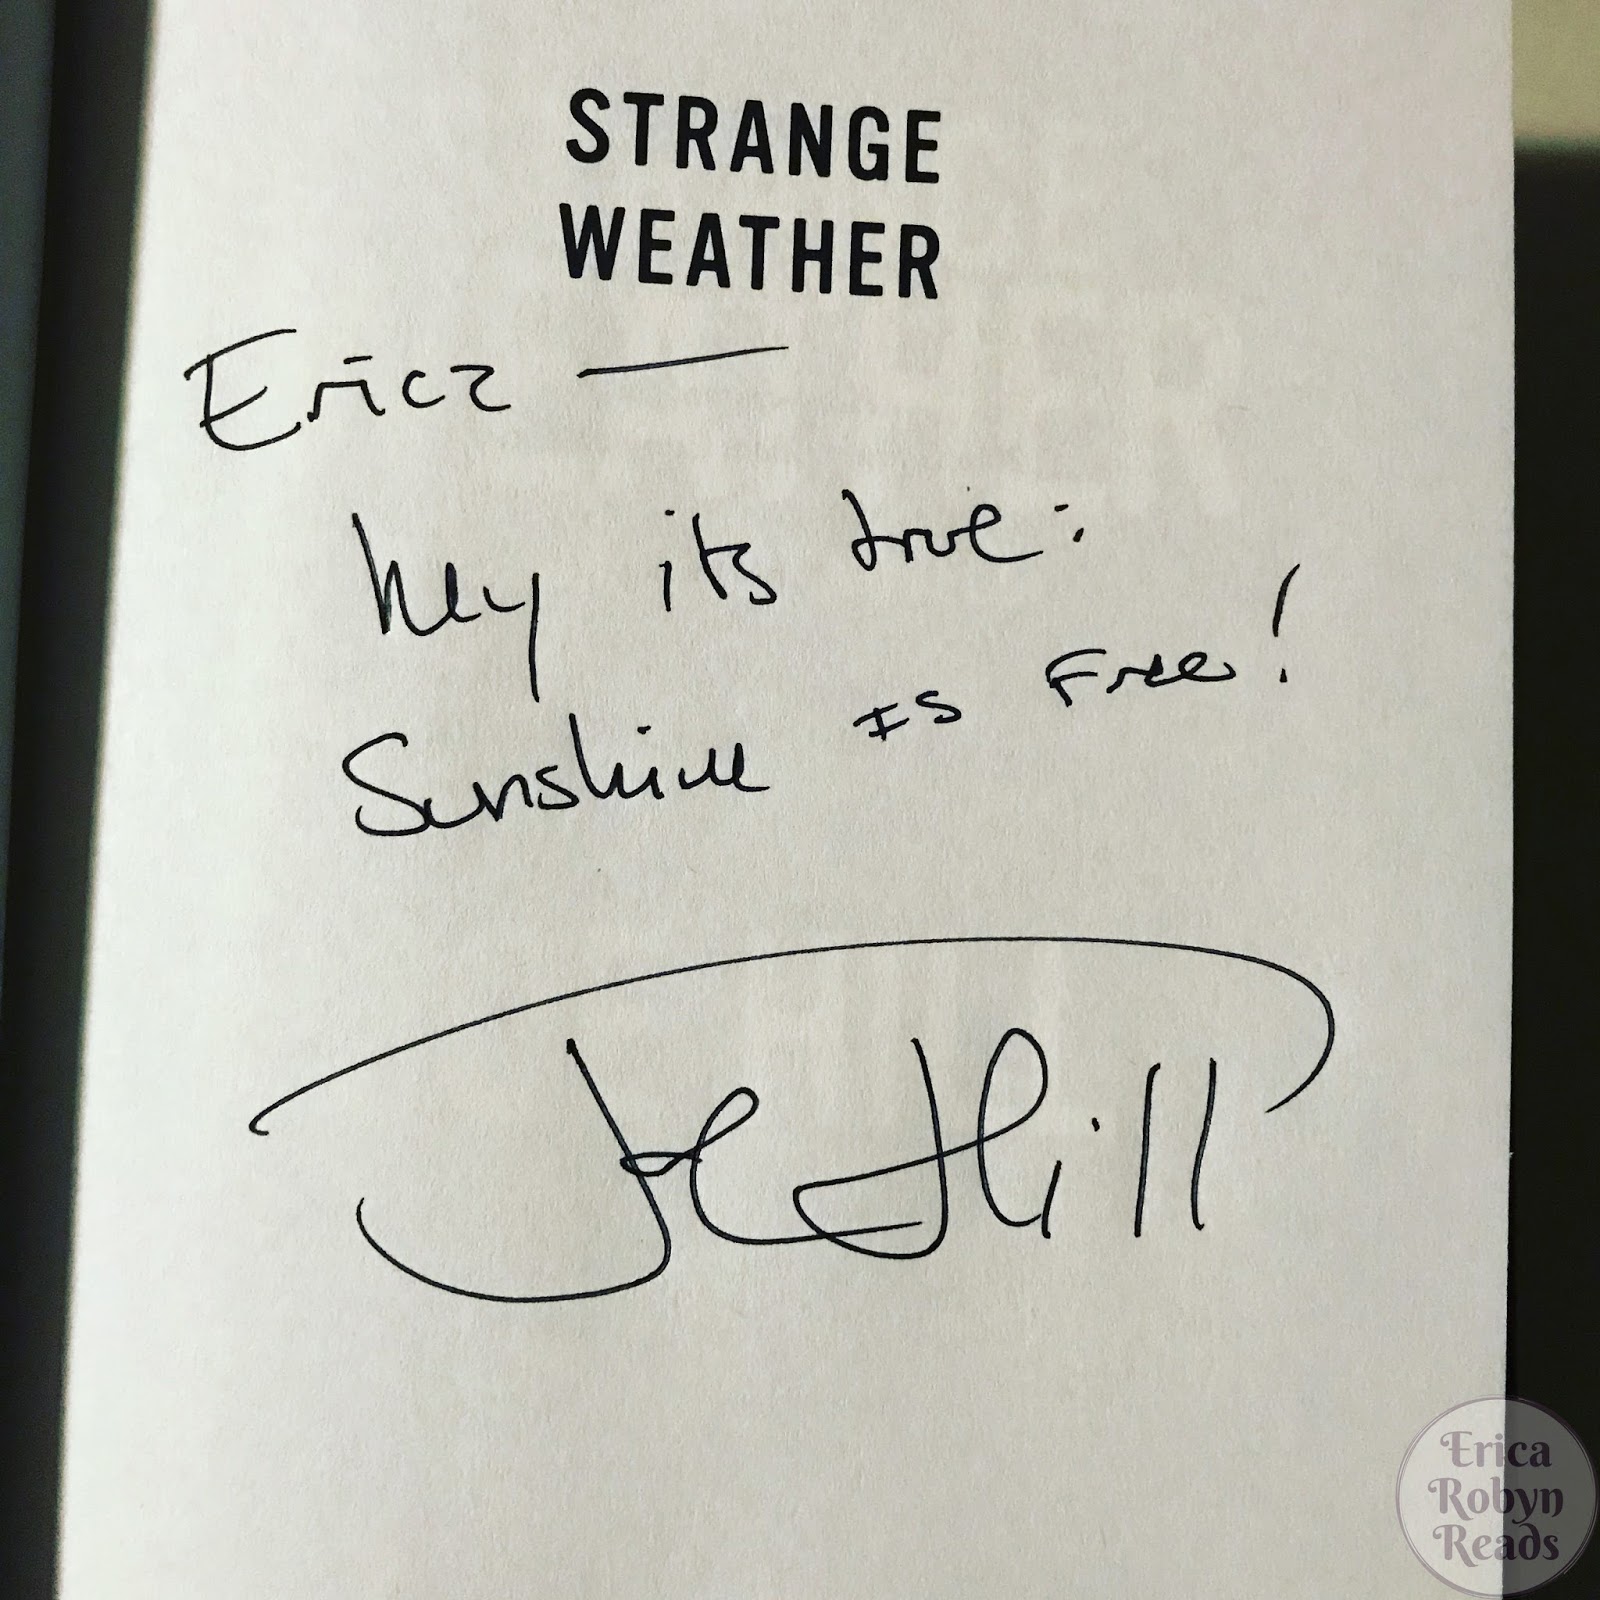 STRANGE
WEATHER
Erica —
hey its true:
Sunshine is Free!
Joe Hill
Erica
Robyn
Reads